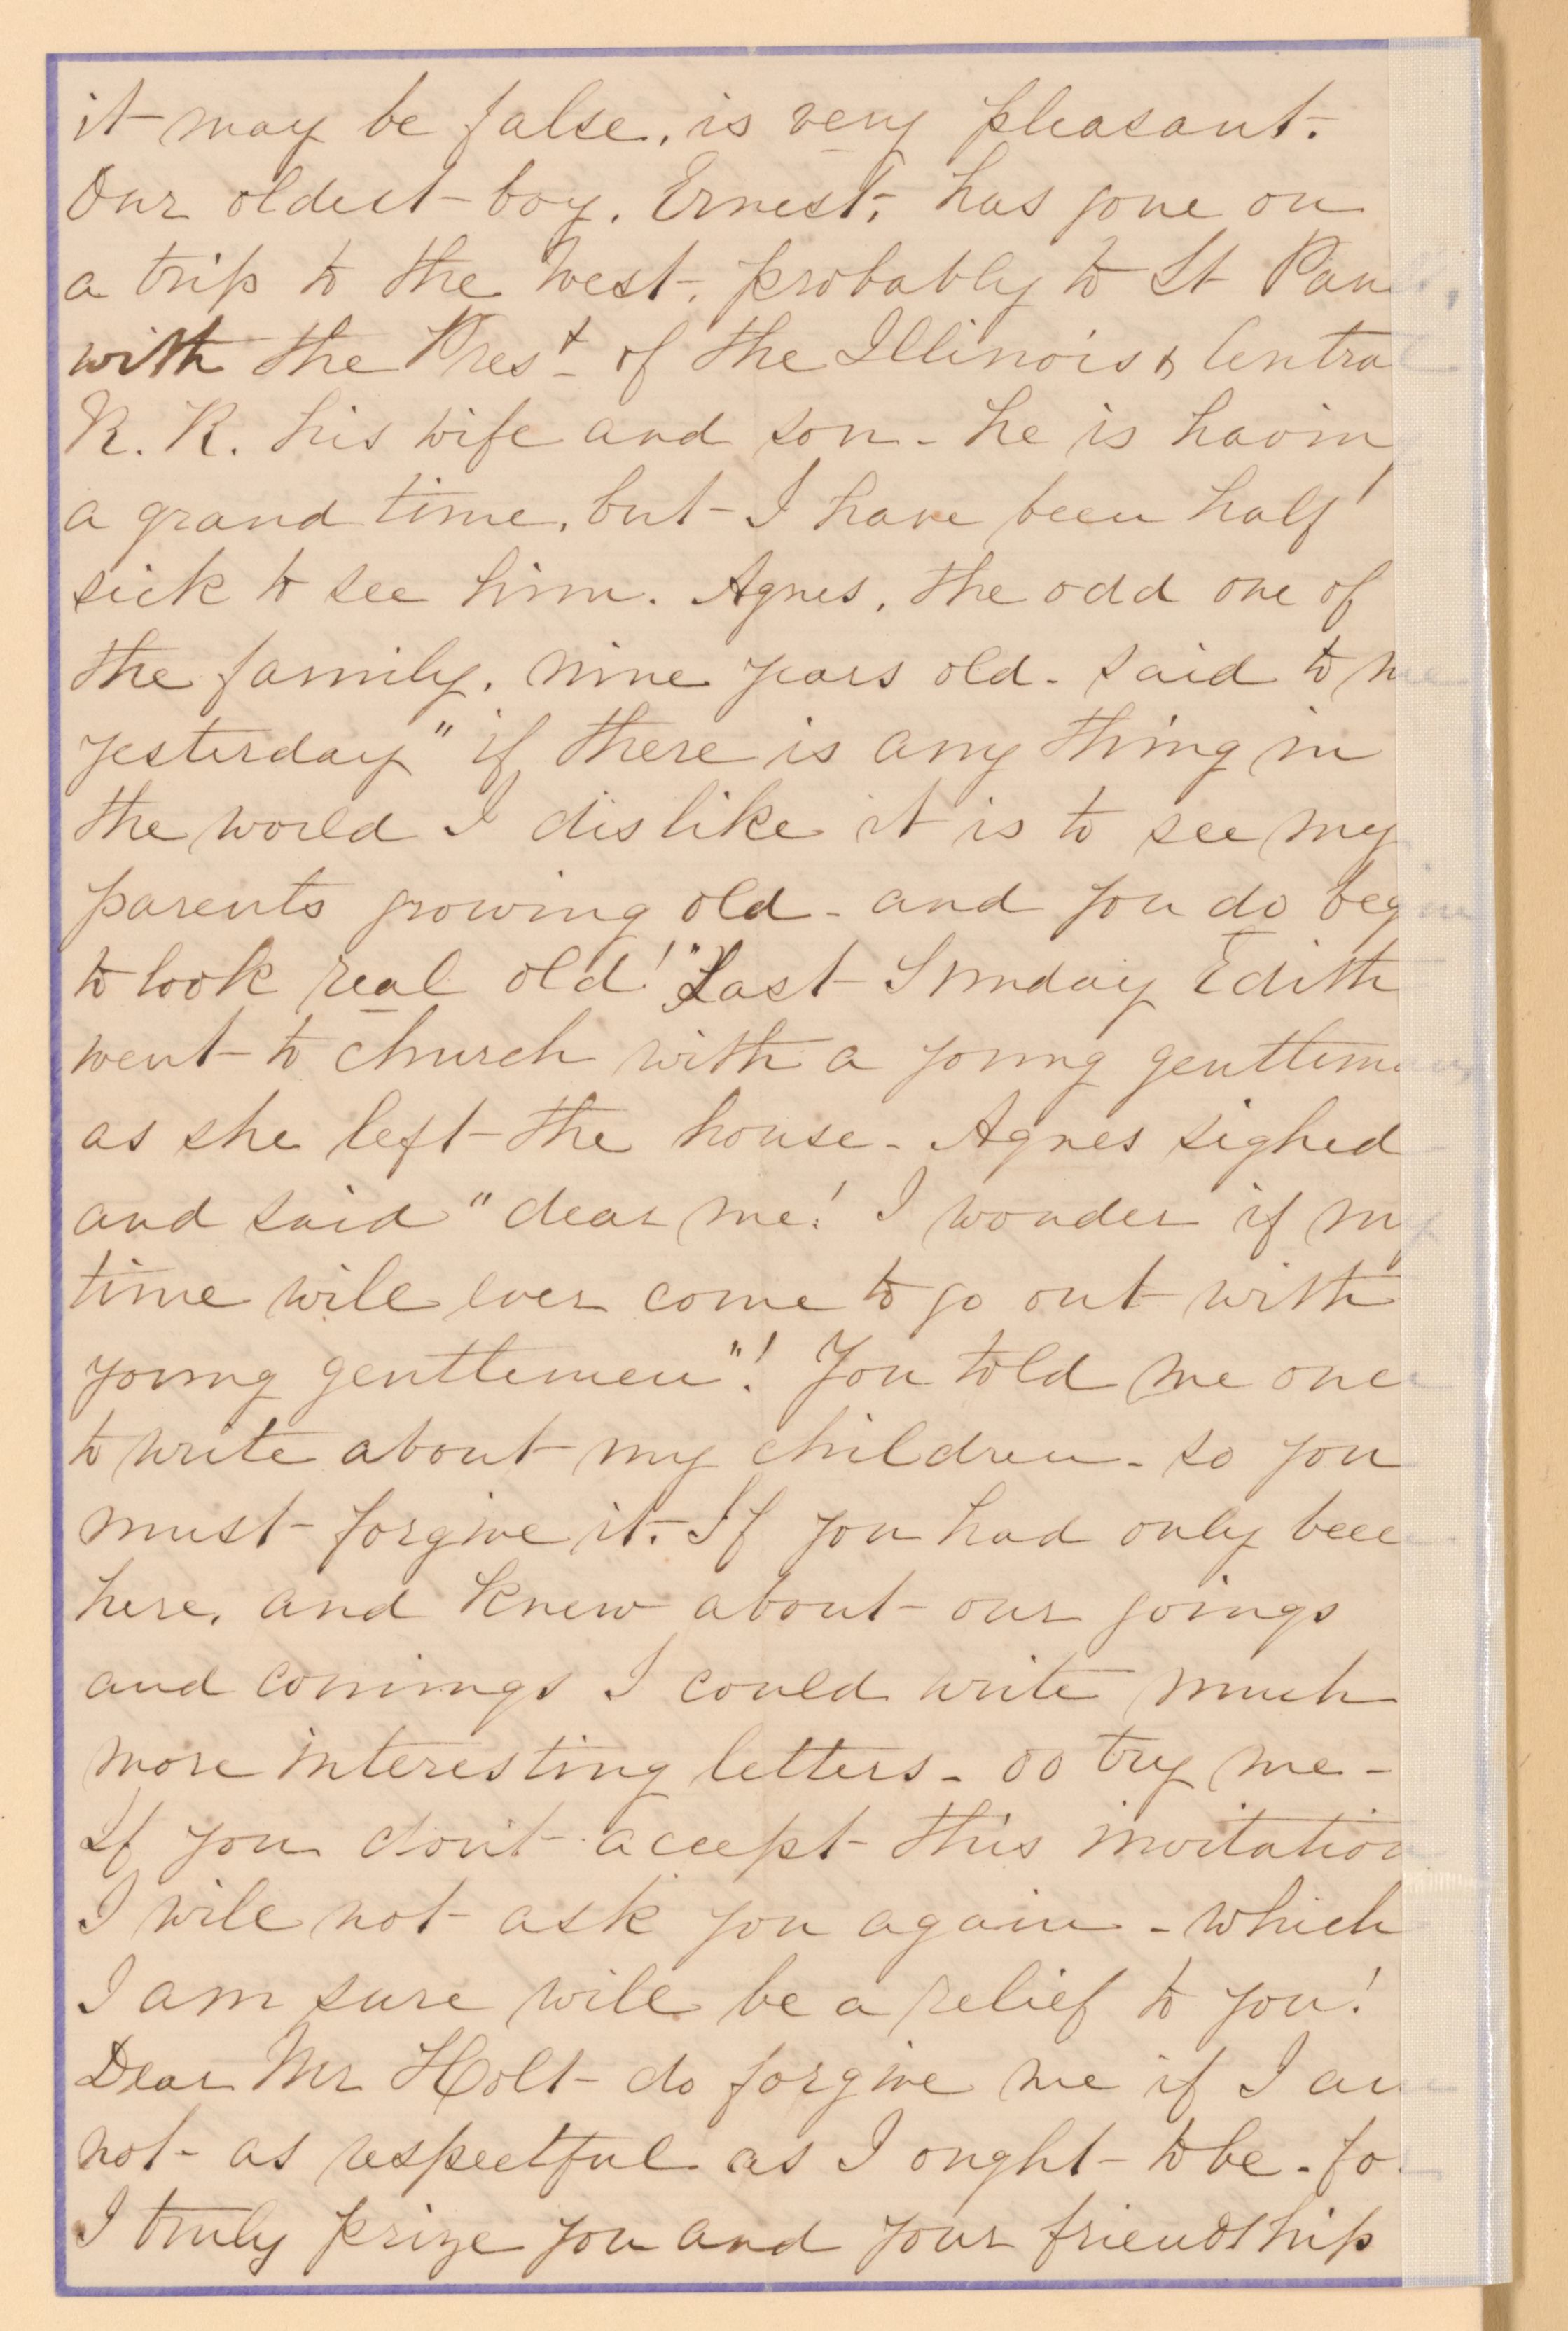 it may be false, is very pleasant.
Our oldest boy, Ernest, has gone on
a trip to the West, probably to St Paul,
with the Prest of the Illinois & Central
R. R. his wife and son - he is having
a grand time, but I have been half
sick to see him. Agnes, the odd one of
the family, nine years old - said to me
yesterday "if there is any thing in
the world I dislike it is to see my
parents growing old - and you do begin
to look real old!" Last Sunday Edith
went to church with a young gentleman
as she left the house - Agnes sighed
and said "dear me! I wonder if my
time will ever come to go out with
young gentlemen"! You told me once
to write about my children - so you
must forgive it. If you had only been
here, and knew about our goings
and comings I could write much
more interesting letters - do try me -
If you don't accept this invitation
I will not ask you again - which
I am sure will be a relief to you!
Dear Mr Holt - do forgive me if I am
not as respectful as I ought to be - for
I truly prize you and your friendship